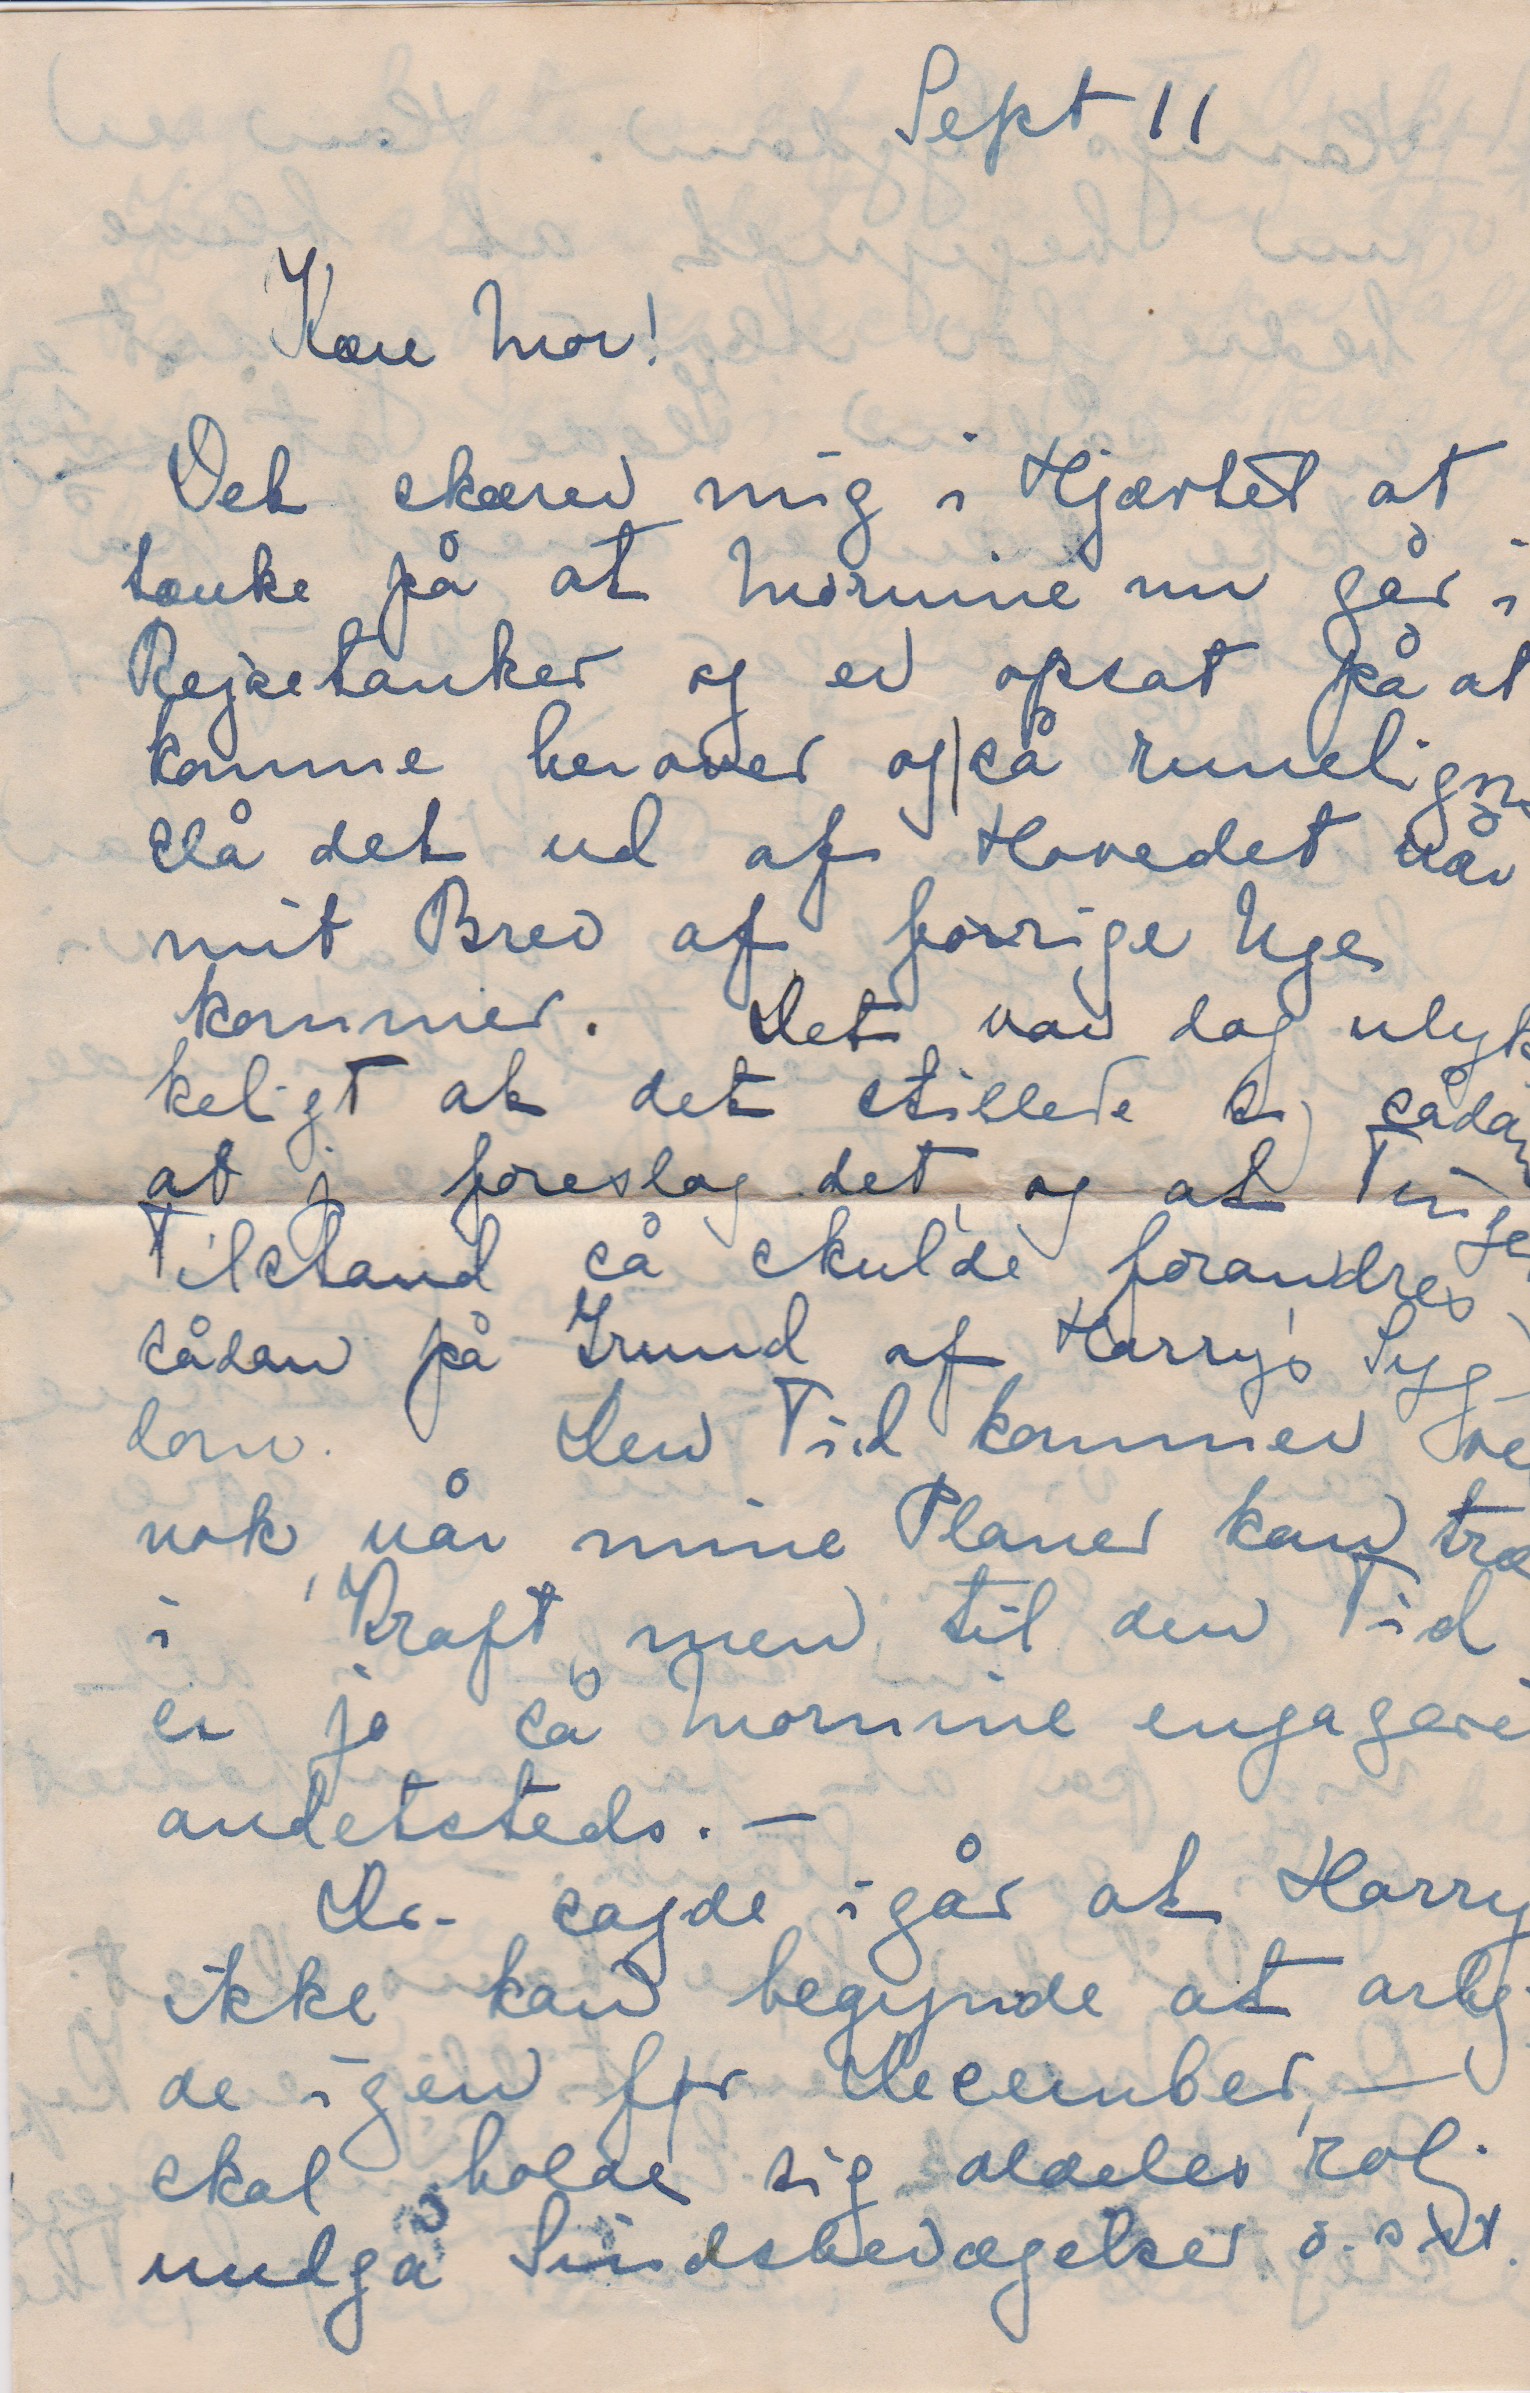 Sept 11
Kære Mor!
Det skærer mig i Hjærtet at
tænke på at Mormine nu går i
Rejsetanker og er opsat på at
komme herover og så rimeligvi
slå det ud af Hovedet når
mit Brev af forrige Uge
kommer. Det var dog ulyk
keligt at det stillede sig sådan
at j foreslog det, og at Tinge
Tilstand så skulde forandres
sådan på Grund af Harry's Syg-
dom. Den Tid kommer ve
nok, når mine Planer kan træ
i Kraft, men til den Tid
er jo så Mormine engagere
andetsteds. —
Dr. sagde igår at Harry
ikke kan begynde at arbej
de igen før December, —
skal holde sig aldeles rolig
undgå Sindsbevægelser o. s. v.